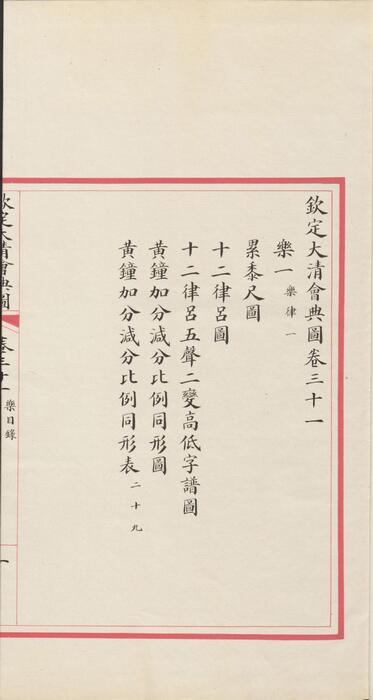 欽定大清會典圖卷三十一
樂一 樂律一
累黍尺圖
十二律呂圖
十二律呂五聲二變高低字譜圖
黃鐘加分減分比例同形圖
黃鐘加分減分比例同形表 二十九
欽定大清會典圖 卷三十一 樂目錄 一